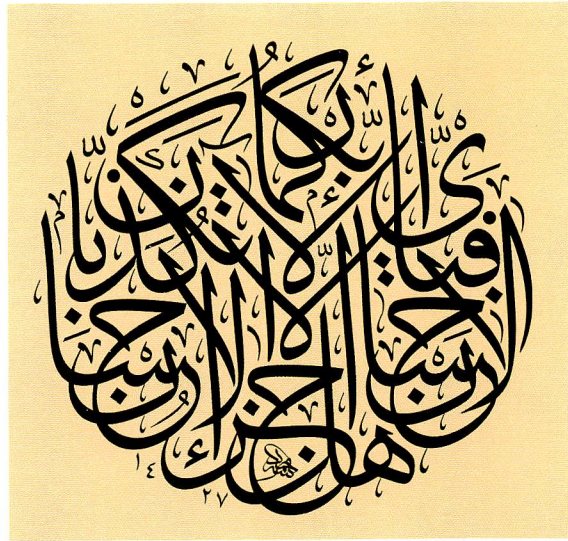 هَلْ جَزَاءُ الْإِحْسَانِ إِلَّا الْإِحْسَانُ
فَبِأَيِّ آلَاءِ رَبِّكُمَا تُكَذِّبَانِ
١٤٢٧